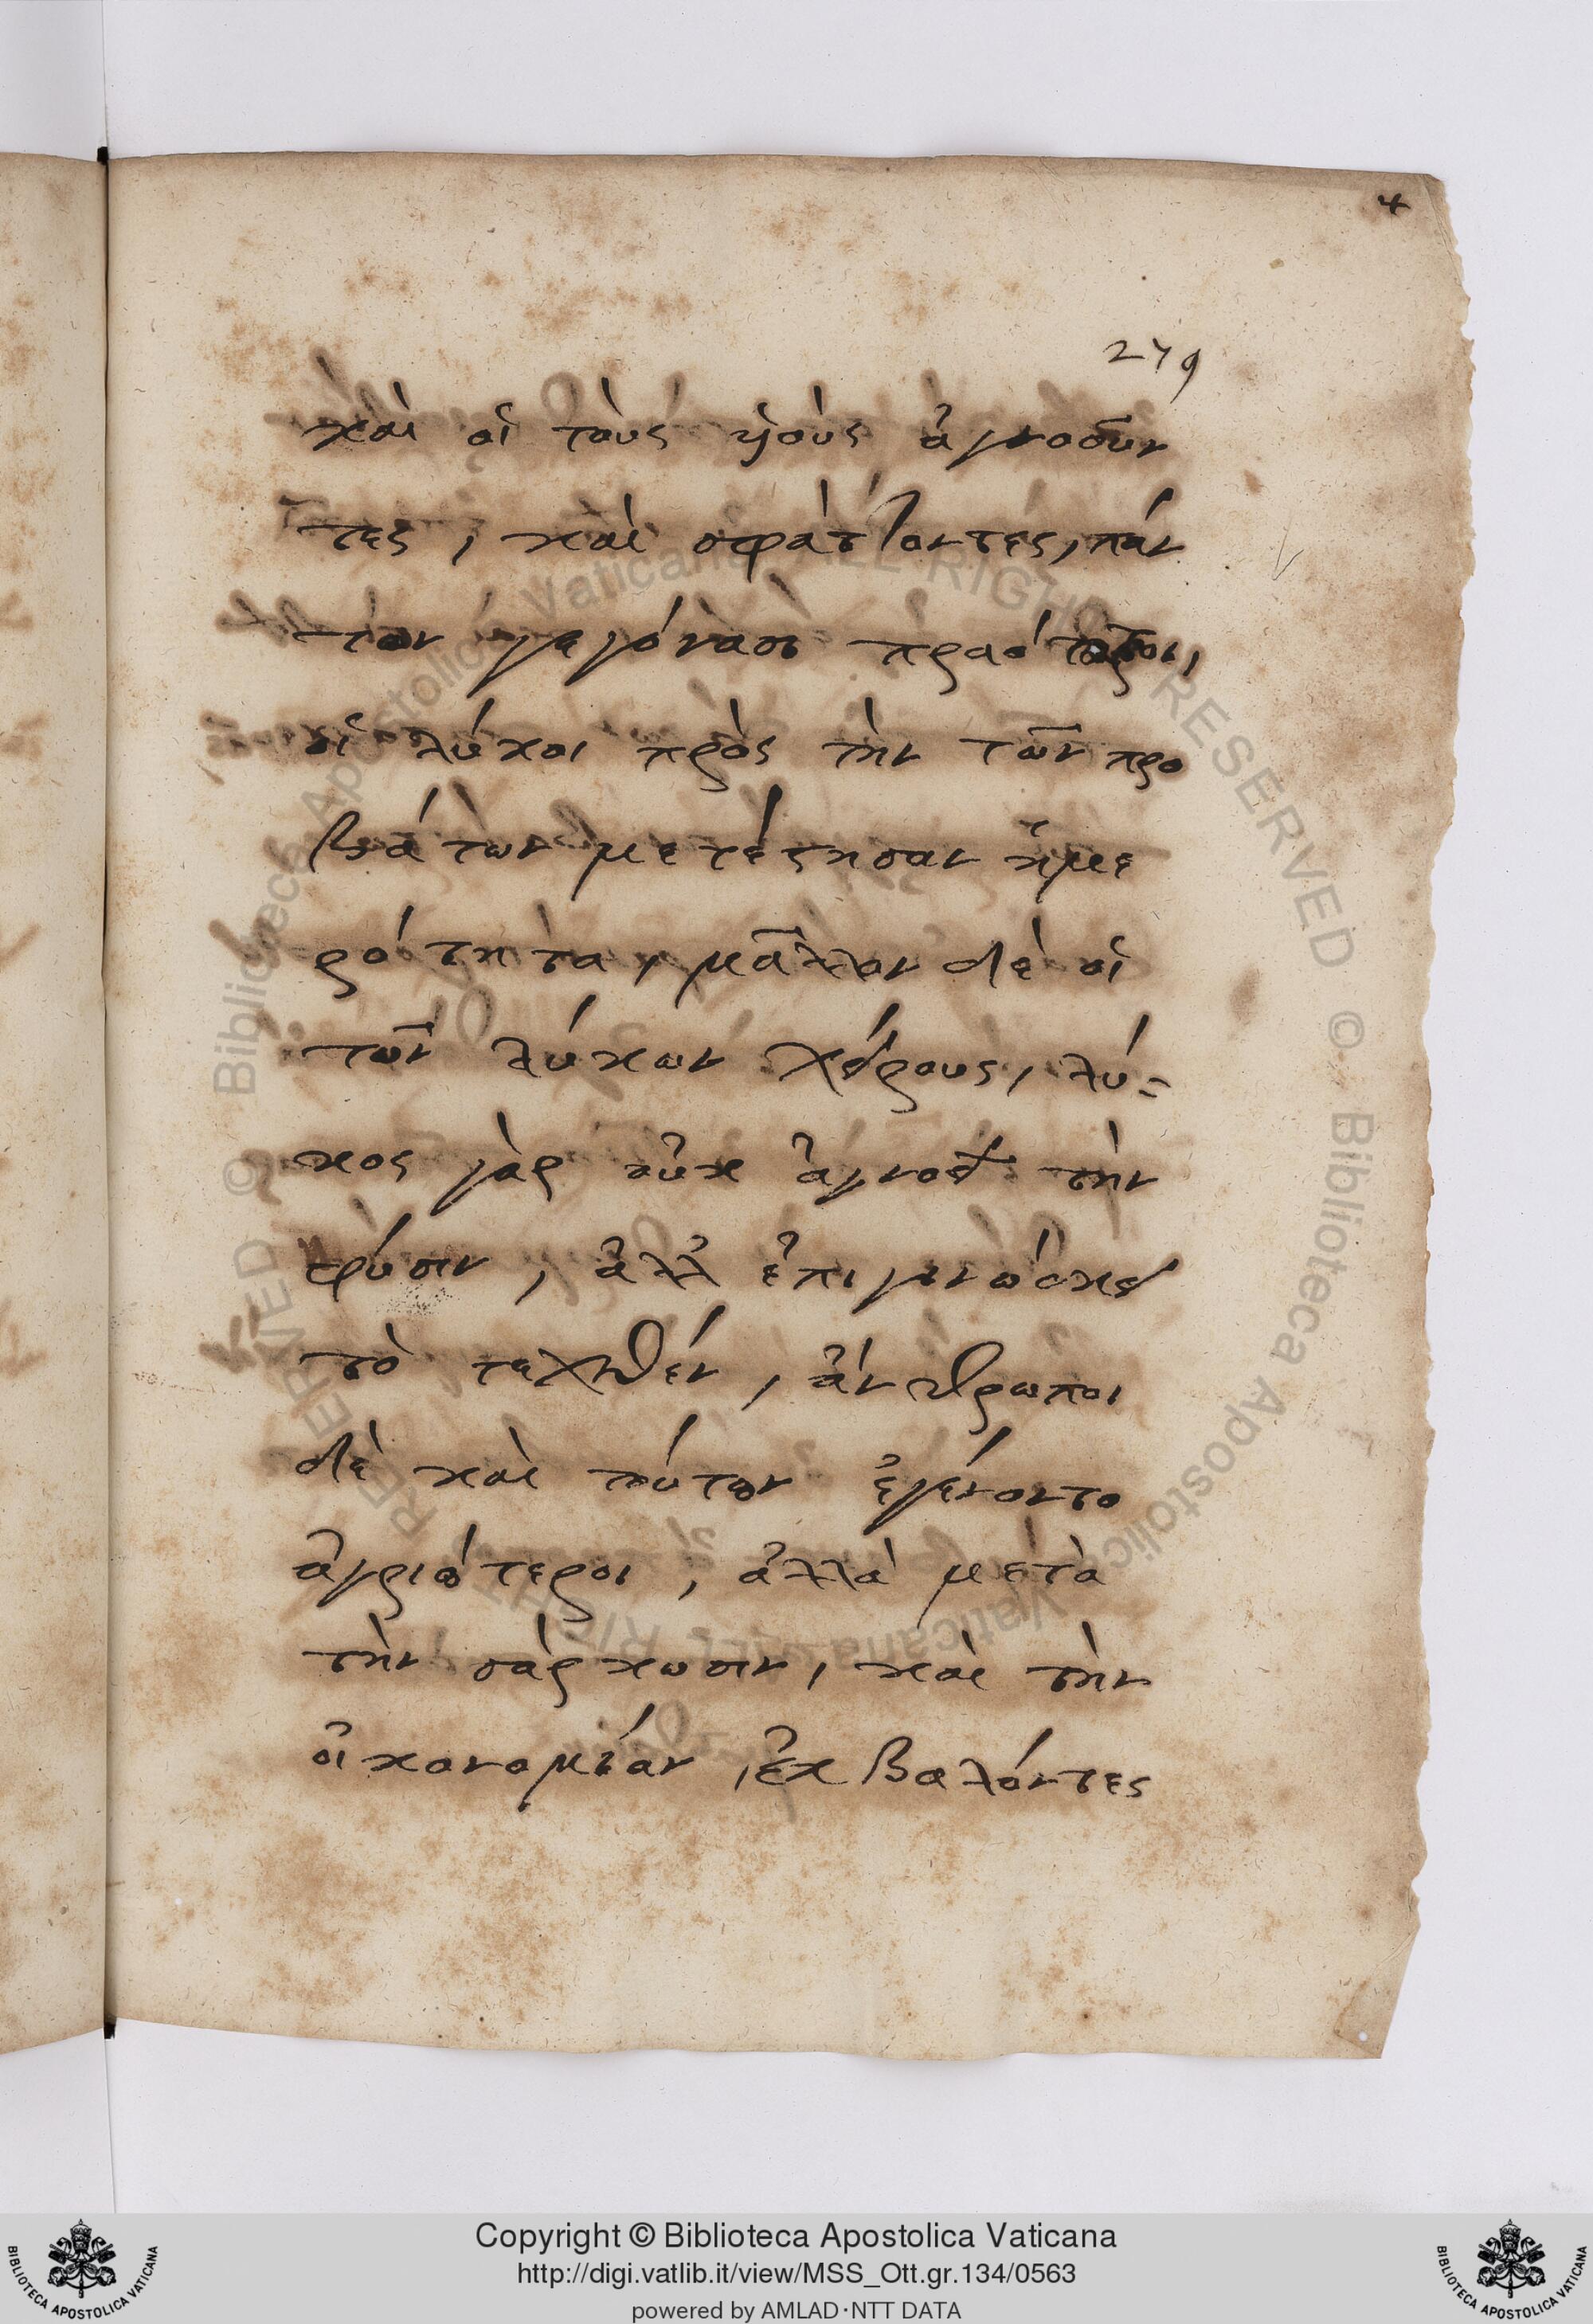 4
279
καὶ οἱ τοὺς υἱοὺς ἀγνοοῦν
τες, καὶ σφάττοντες, πάν
των γεγόνασι πραότεροι,
οἱ λύκοι πρὸς τὴν τῶν προ
βάτων μετέστησαν ἡμε
ρότητα, μᾶλλον δὲ οἱ
τῶν λύκων χείρους, λύ=
κος γὰρ οὐκ ἀγνοεῖ τὴν
φύσιν, ἀλλ' ἐπιγινώσκει
τὸ τεχθέν, ἄνθρωποι
δὲ καὶ τούτων ἐγένοντο
ἀγριώτεροι, ἀλλὰ μετὰ
τὴν σάρκωσιν, καὶ τὴν
οἰκονομίαν, ἐκβαλόντες
© Biblioteca Apostolica Vaticana ALL RIGHTS RESERVED © Biblioteca Apostolica Vaticana ALL RIGHTS RESERVED
Copyright © Biblioteca Apostolica Vaticana
http://digi.vatlib.it/view/MSS_Ott.gr.134/0563
powered by AMLAD·NTT DATA
BIBLIOTECA APOSTOLICA VATICANA
BIBLIOTECA APOSTOLICA VATICANA